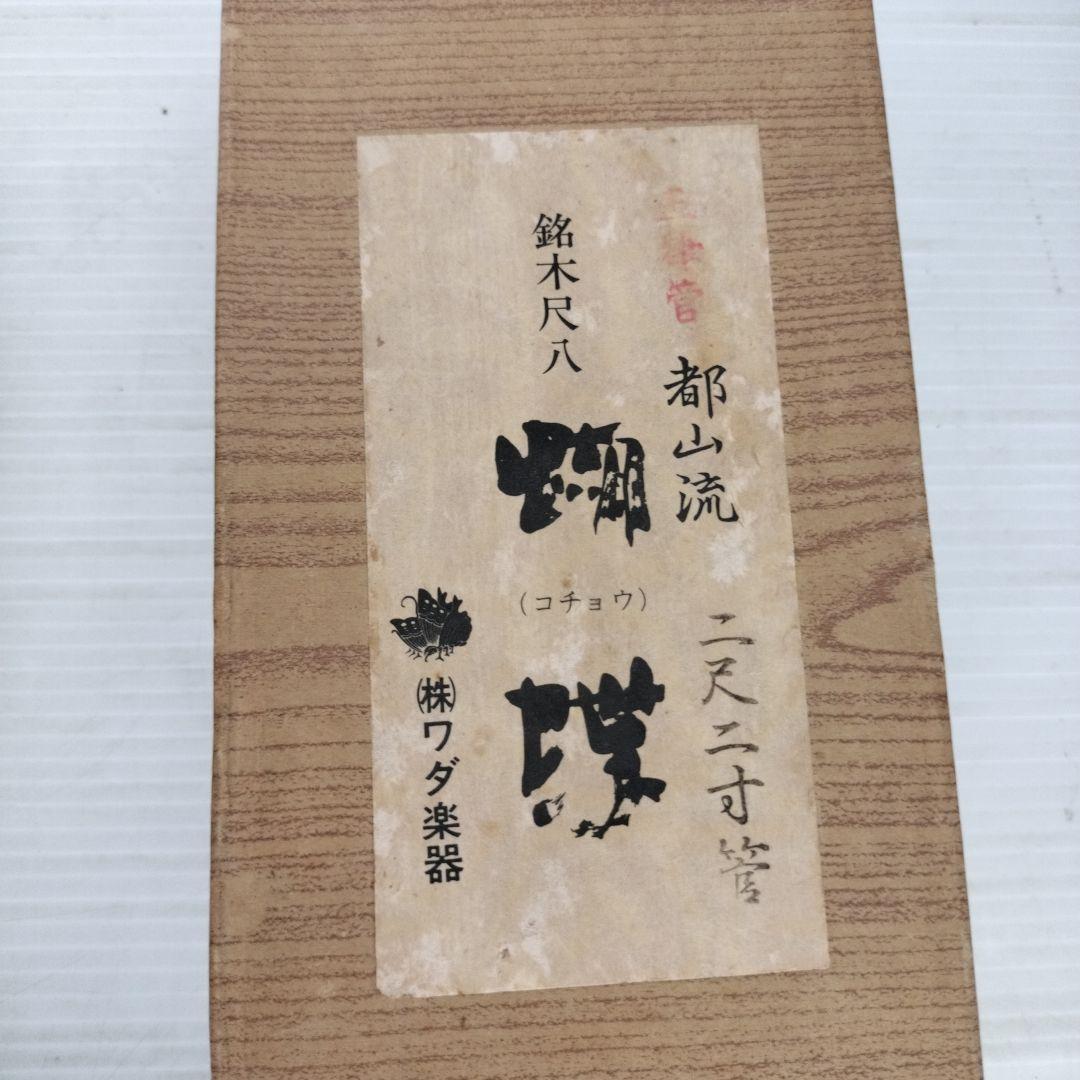 都山流
二尺二寸管
銘木尺八
蝴
(コチョウ)
蝶
㈱ワダ楽器